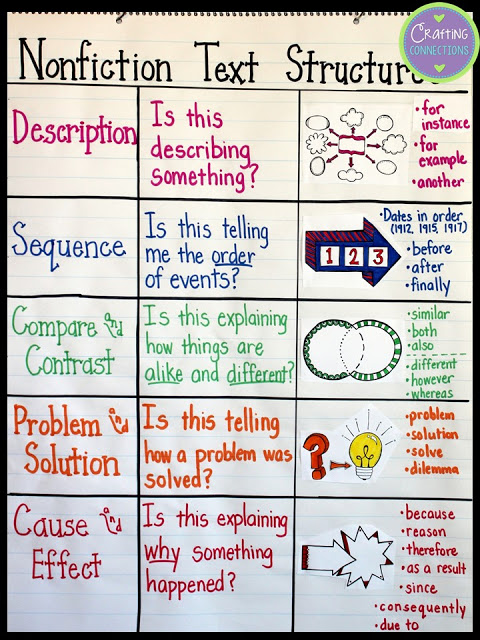 Crafting
CONNECTIONS
Nonfiction Text Structures
Description
Is this
describing
something?
• for
instance
• for
example
• another
Sequence
Is this telling
me the order
of events?
1 2 3
• Dates in order
(1912, 1915, 1917)
• before
• after
• finally
Compare and
Contrast
Is this explaining
how things are
alike and different?
• similar
• both
• also
• different
• however
• whereas
Problem and
Solution
Is this telling
how a problem was
solved?
?
• problem
• solution
• solve
• dilemma
Cause and
Effect
Is this explaining
why something
happened?
• because
• reason
• therefore
• as a result
• since
• consequently
• due to